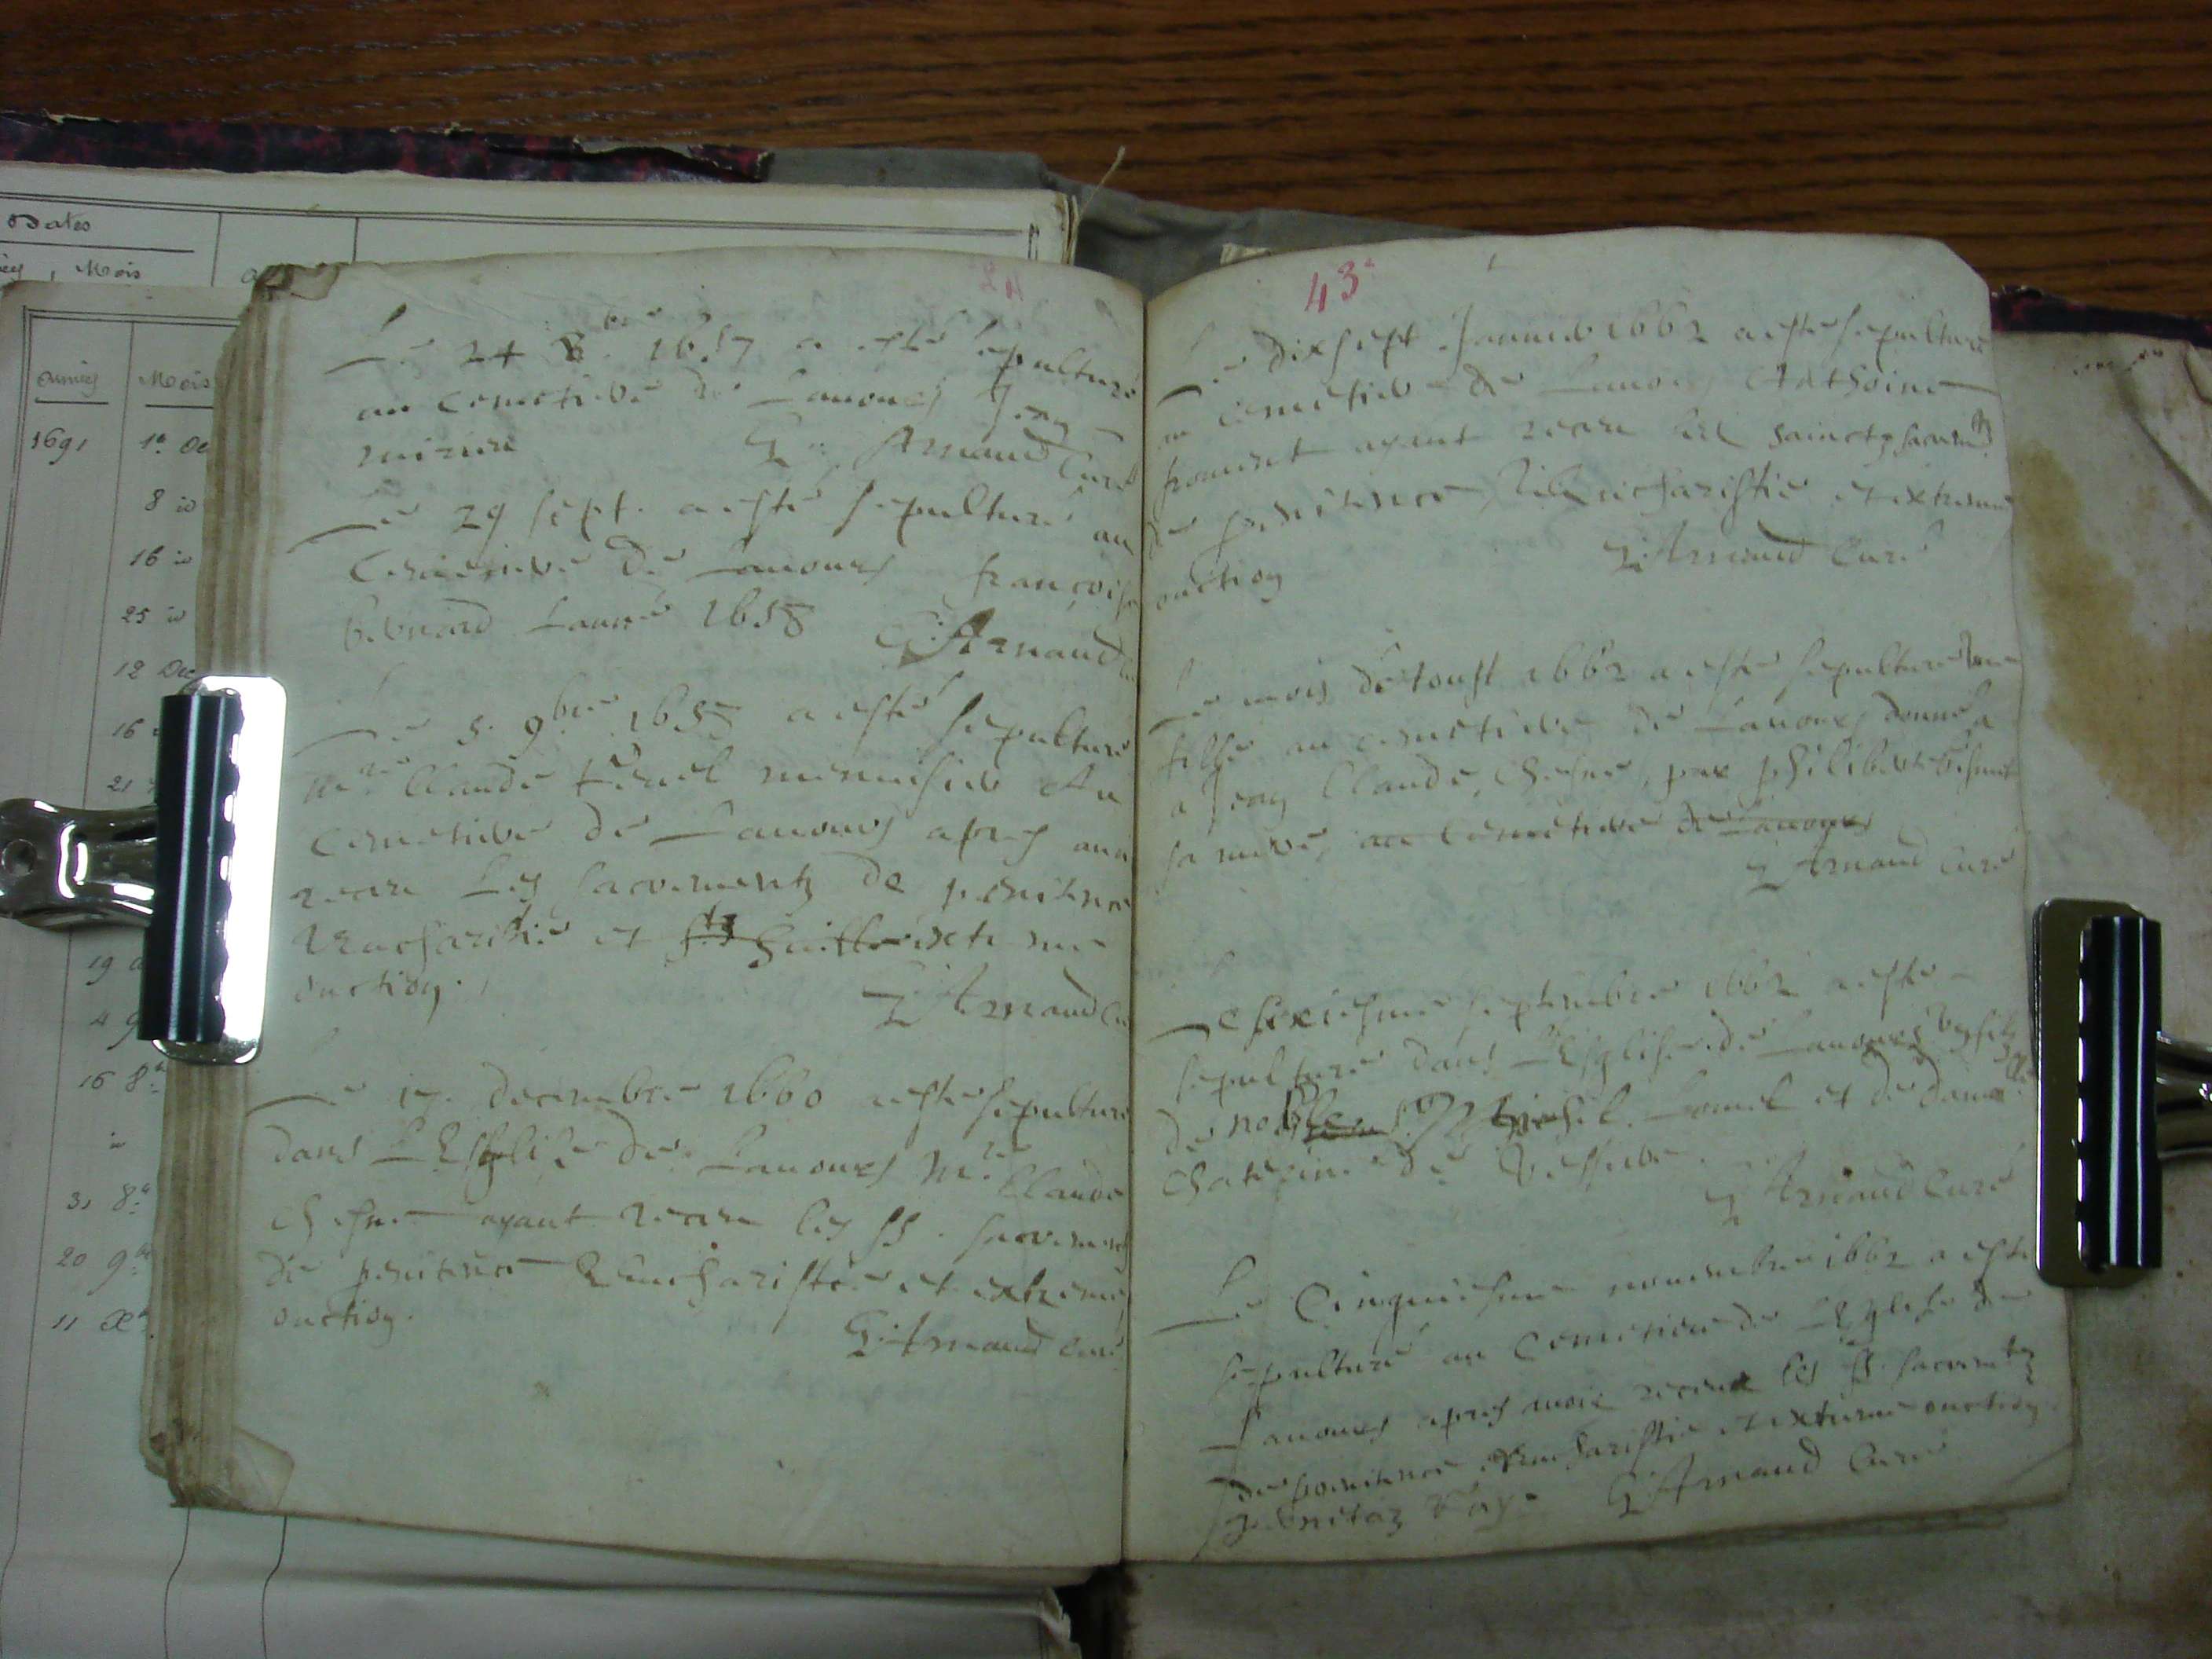 Dates
Mois
années Mois
1691 1a
8 id
16 id
25 id
12 Dec
16
21
19
4 9
16 8a
id
31 8a
20 9
11 Xa
42
Le 24 8bre 1657 a esté sepulturé
au Cemetiere de Lanoues Jean
G. Arnaud Curé
Le 29 sept. a esté sepulturé au
Cemetiere de Lanoues françoise
bernard Lanné 1658 G. Arnaud
Le 5. 9bre 1658 a esté sepulturé
mre Claude menuisier Au
Cemetiere de Lanoues apres auoir
receu Les sacrementz de penitence
Eucharistie et sts huille exteme
onction. G. Arnaud Cu
Le 17. decembre 1660 a esté sepulturé
dans L'Esglise de Lanoues Mre Claude
Chesne ayant receu les SS. sacrement
de penitence Eucharistie et extreme
onction. G. Arnaud Curé
43
Le dixsept Januier 1662 a esté sepulturé
au cemetiere de Lanoues Anthoine
froment ayant receu les sainctz sacremts
de penitence, l'Eucharistie et extreme
onction G. Arnaud Curé
Le mois d'Aoust 1662 a esté sepulturé une
fille au cemetiere de Lanoues donnée
a Jean Claude, Chesne, par philiberte
sa mere, au Cemetiere de Lanoues
G. Arnaud Curé
Le sixiesme septembre 1662 a esté
sepulturé dans L'Esglise de Lanoues un filz
de noble Michel. et de dame
Chaterine de
G. Arnaud Curé
Le Cinquiesme nouembre 1662 a esté
sepulturé au Cemetiere de L'Eglise de
Lanoues apres auoir receu les SS. sacremtz
de penitence Eucharistie et extreme onction
G. Arnaud Curé